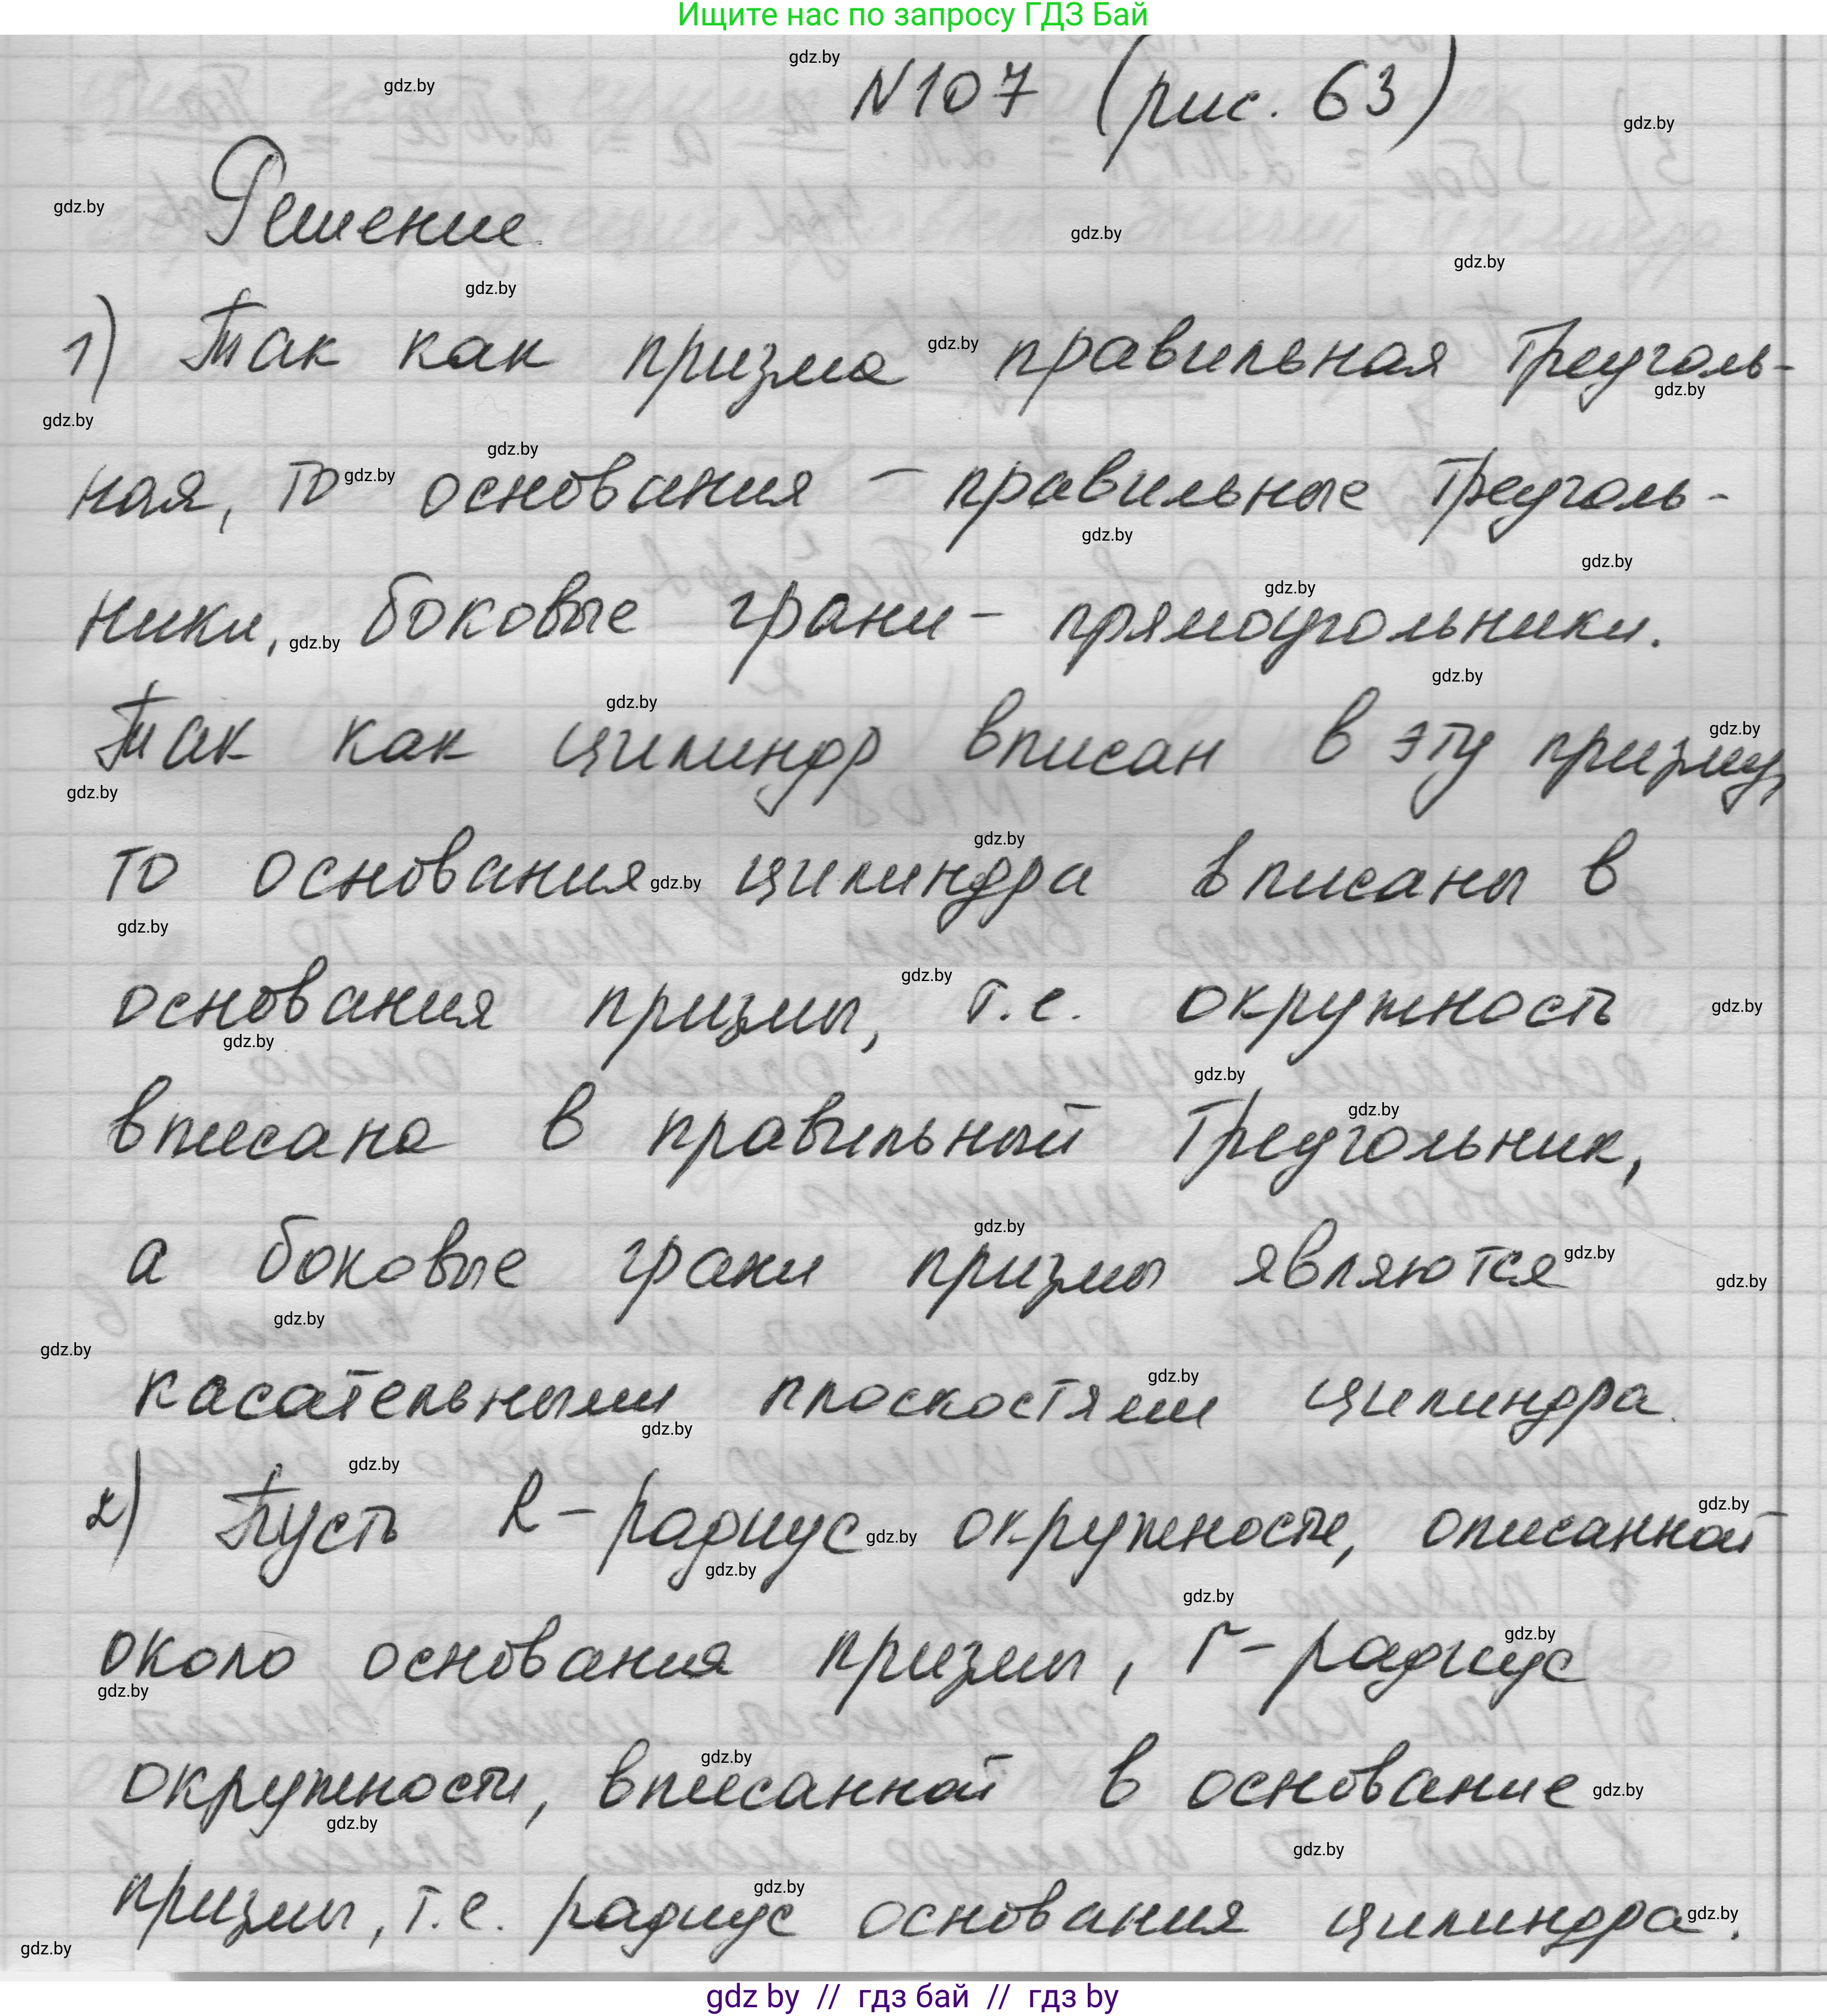 Ищите нас по запросу ГДЗ Бай
N107 (рис. 63)
Решение.
1) Так как призма правильная треуголь-
ная, то основания – правильные треуголь-
ники, боковые грани – прямоугольники.
Так как цилиндр вписан в эту призму,
то основания цилиндра вписаны в
основания призмы, т.е. окружность
вписана в правильный треугольник,
а боковые грани призмы являются
касательными плоскостями цилиндра.
2) Пусть R – радиус окружности, описанной
около основания призмы, r – радиус
окружности, вписанной в основание
призмы, т.е. радиус основания цилиндра.
gdz by // гдз бай // гдз by